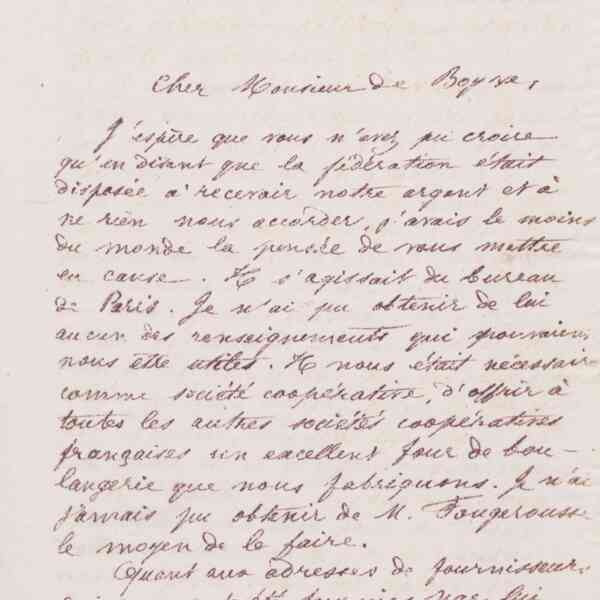 Cher Monsieur de Boyve,
J'espère que vous n'avez pu croire
qu'en disant que la fédération était
disposée à recevoir notre argent et à
ne rien nous accorder, j'avais le moins
du monde la pensée de vous mettre
en cause. Il s'agissait du bureau
de Paris. Je n'ai pu obtenir de lui
aucun des renseignements qui pouvaien
nous être utiles. Il nous était nécessair
comme société coopérative, d'offrir à
toutes les autres sociétés coopératives
françaises un excellent four de bou-
langerie que nous fabriquons. Je n'ai
jamais pu obtenir de M. Fougerousse
le moyen de le faire.
Quant aux adresses de fournisseur